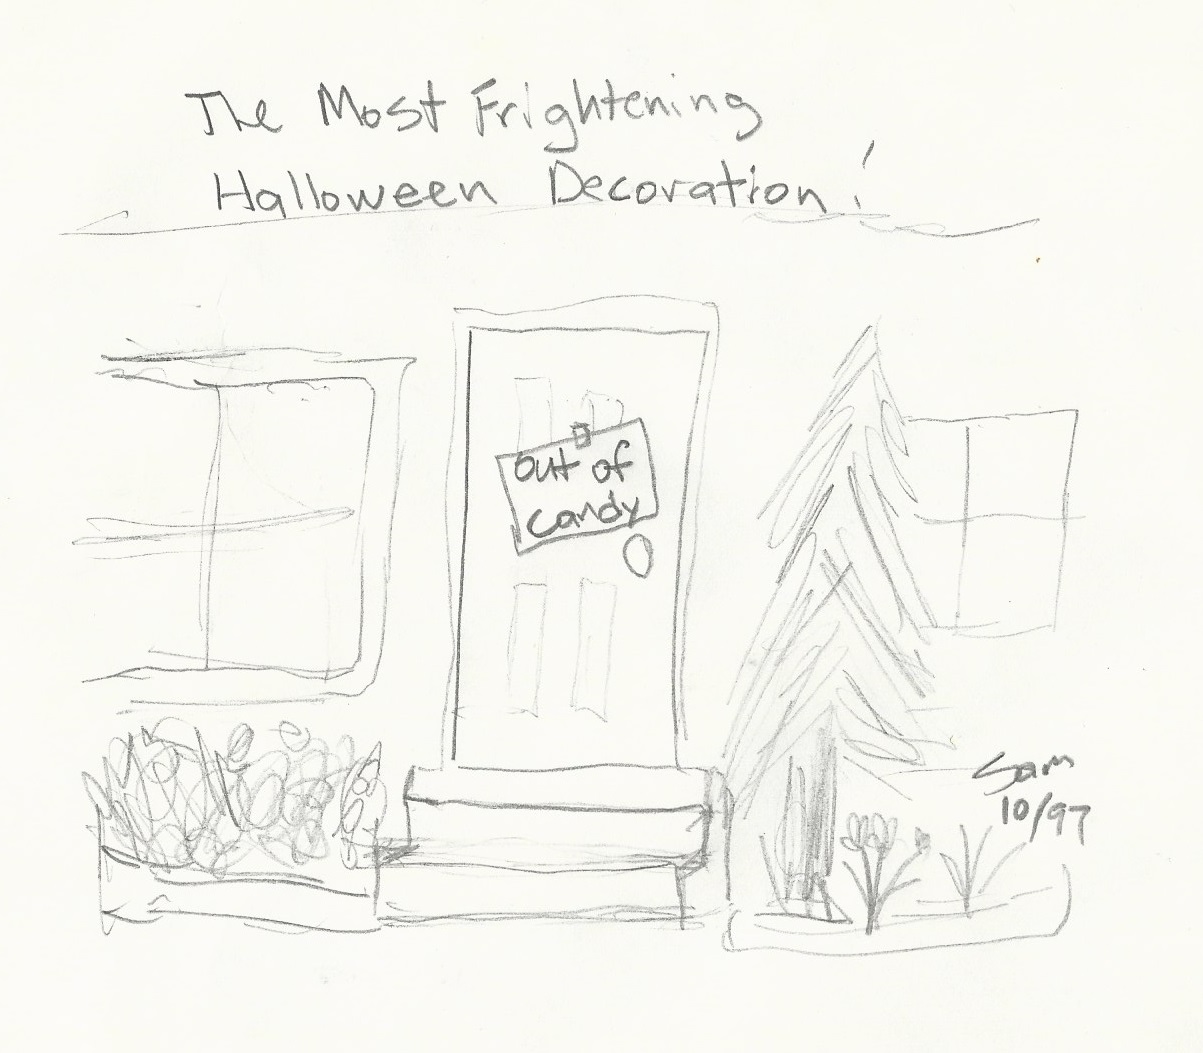 The Most Frightening
Halloween Decoration!
out of
candy
Sam
10/97